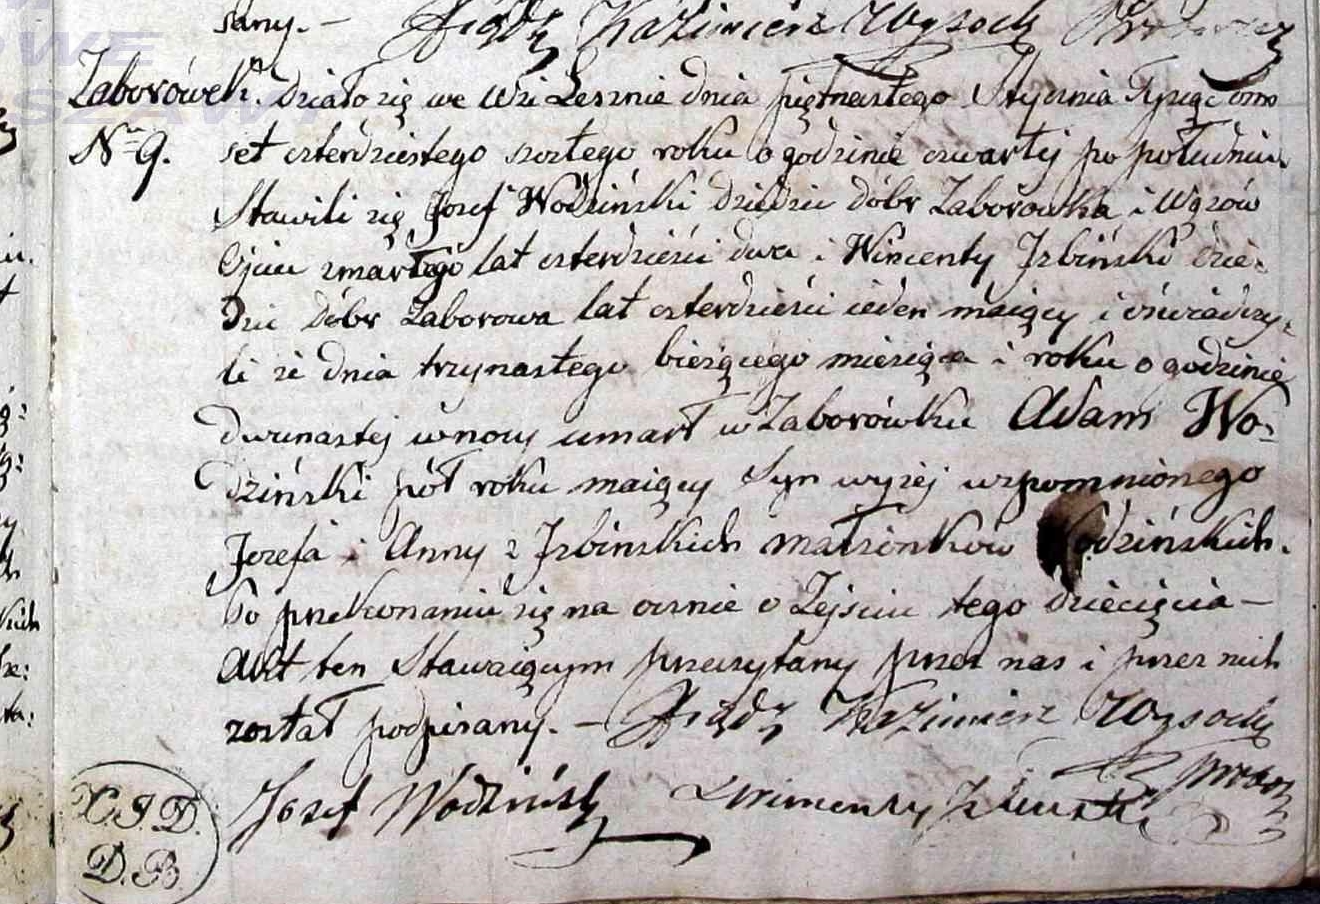 sany. – Xiądz Kazimierz Wysocki
Zaborówek. Działo się we Wsi Lesznie dnia piętnastego Stycznia Tysiąc ośm
Nro 9. set czterdziestego szostego roku o godzinie czwartej po południu.
Stawili się Jozef Wodziński dziedzic dóbr Zaborówka i Wąsów
Ojciec zmarłego lat czterdzieści dwa i Wincenty Izbiński dzie-
dzic Dóbr Zaborowa lat czterdzieści ieden maiący i oświadczy-
li że dnia trzynastego bieżącego miesiąca i roku o godzinie
dwunastej w nocy umarł w Zaborówku Adam Wo-
dziński pół roku maiący Syn wyżej wzpomnionego
Jozefa i Anny z Izbinskich małżonków Wodzińskich.
Po przekonaniu się na ocznie o Zejściu tego dziecięcia –
Akt ten Stawaiącym przeczytany przez nas i przez nich
został podpisany. – Xiądz Kazimierz Wysocki
Prob
Józef Wodziński Wincenty Izbiński
X.I.D.
D.B.